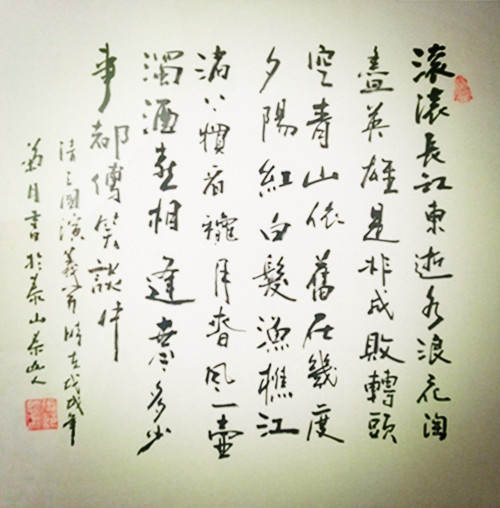 滚滚長江東逝水浪花淘
盡英雄是非成敗轉頭
空青山依舊在幾度
夕陽紅白髮漁樵江
渚上慣看穐月春風一壺
濁酒喜相逢古今多少
事都傅笑談中
三國演義 時在戊戌年
菊月書於泰山泰山人